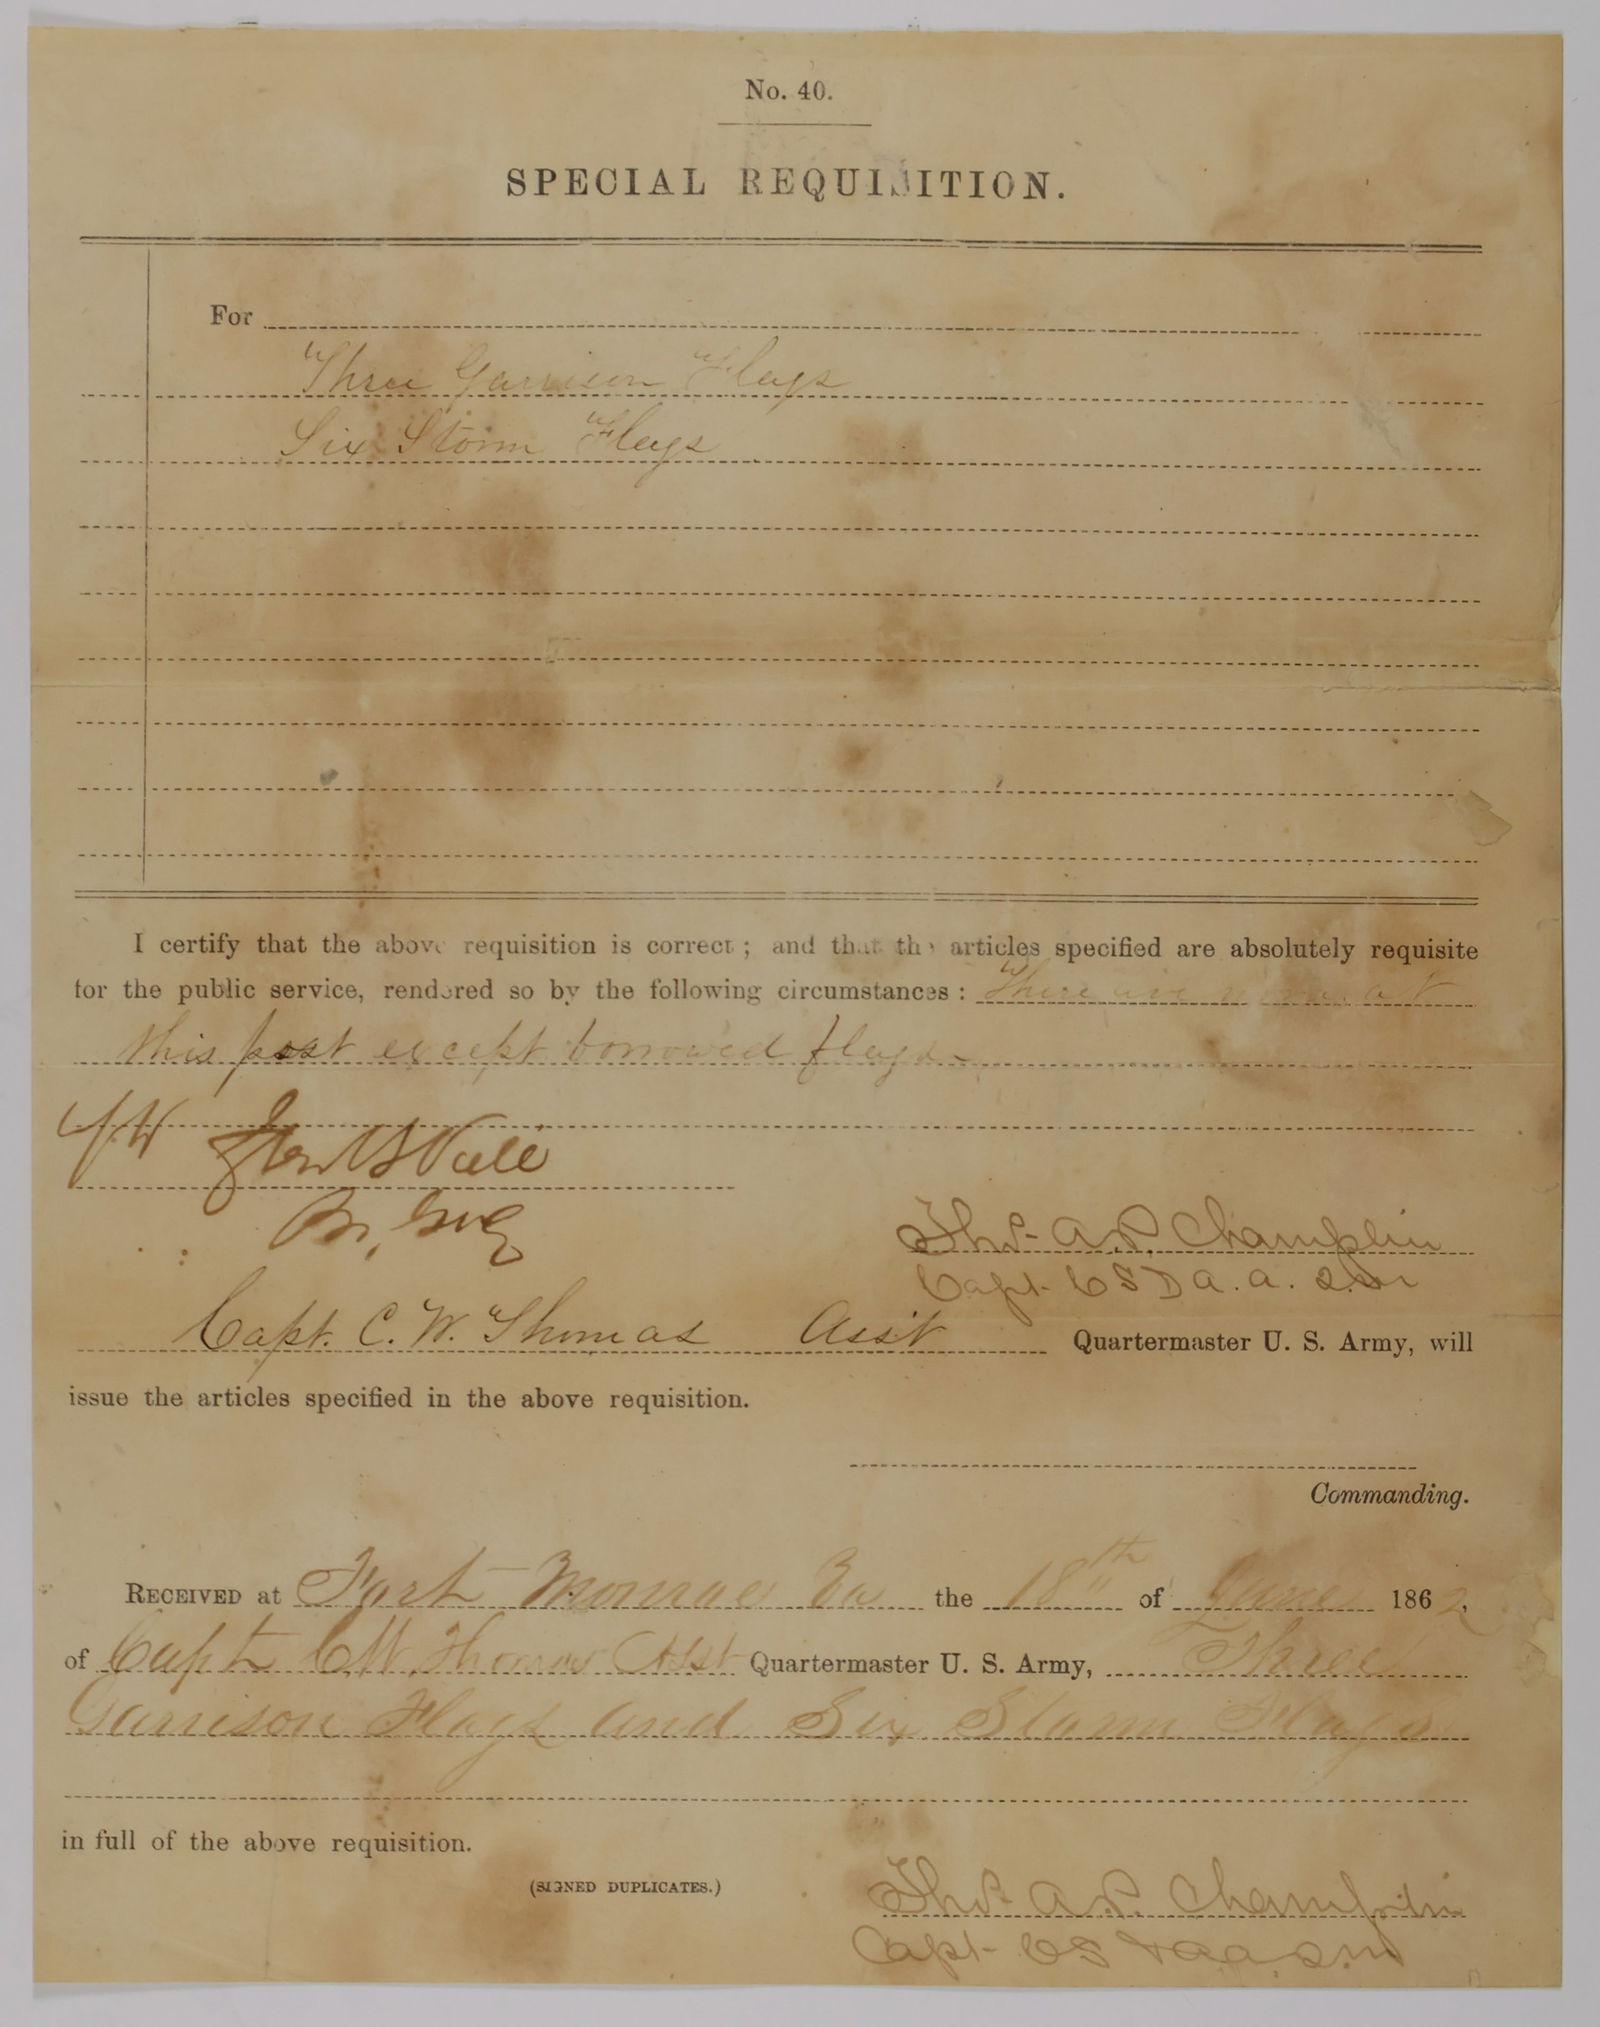 No. 40.
SPECIAL REQUISITION.
For
Three Garrison Flags
Six Storm Flags
I certify that the above requisition is correct; and that the articles specified are absolutely requisite
for the public service, rendered so by the following circumstances: There are none at
this post except borrowed flags -
Thos. A. P. Champlin
Capt. C S
Capt. C. W. Thomas Asst Quartermaster U. S. Army, will
issue the articles specified in the above requisition.
Commanding.
RECEIVED at Fort Monroe Va the 18th of June 1862,
of Capt C W Thomas Asst Quartermaster U. S. Army, Three
Garrison Flags and Six Storm Flags
in full of the above requisition.
(SIGNED DUPLICATES.)
Thos. A. P. Champlin
Capt- C S & A A Q. M